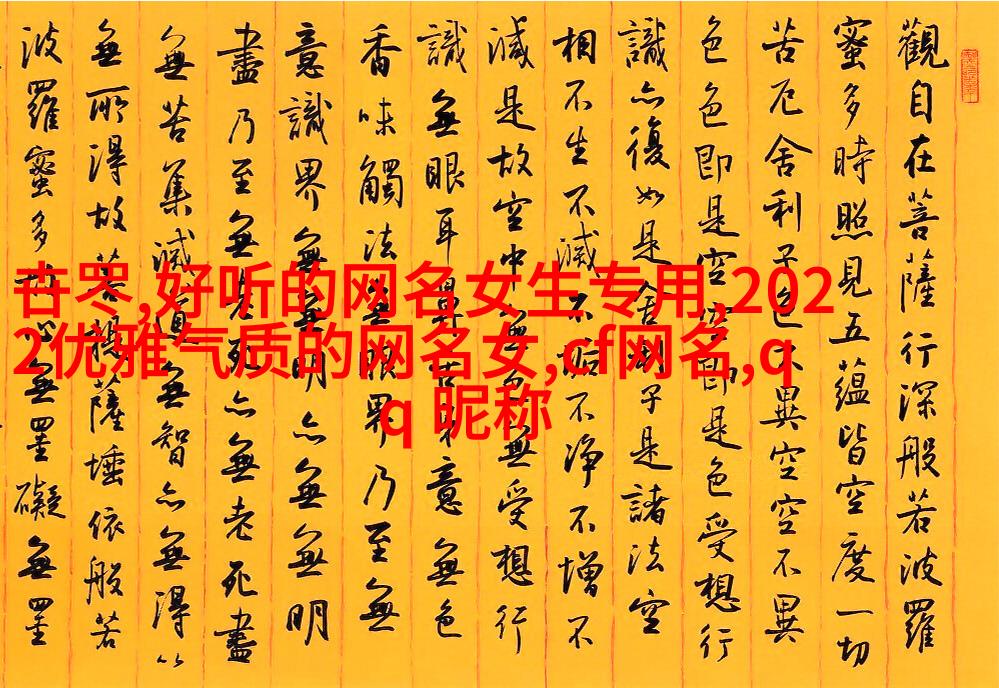 觀自在菩薩行深般若波羅
蜜多時照見五蘊皆空度一切
苦厄舍利子色不異空空不異
色色即是空空即是色受想行
識亦復如是舍利子是諸法空
相不生不滅不垢不淨不增不
減是故空中無色無受想行
識無眼耳鼻舌身意無色
香味觸法無眼界乃至無
意識界無無明亦無無明
盡乃至無老死亦無老死盡
無苦集滅道無智亦無得以
無所得故菩提薩埵依般若
波羅蜜多故心無罣礙無罣
,好听的网名女生专用,202
2优雅气质的网名女,cf网名,q
q 昵称